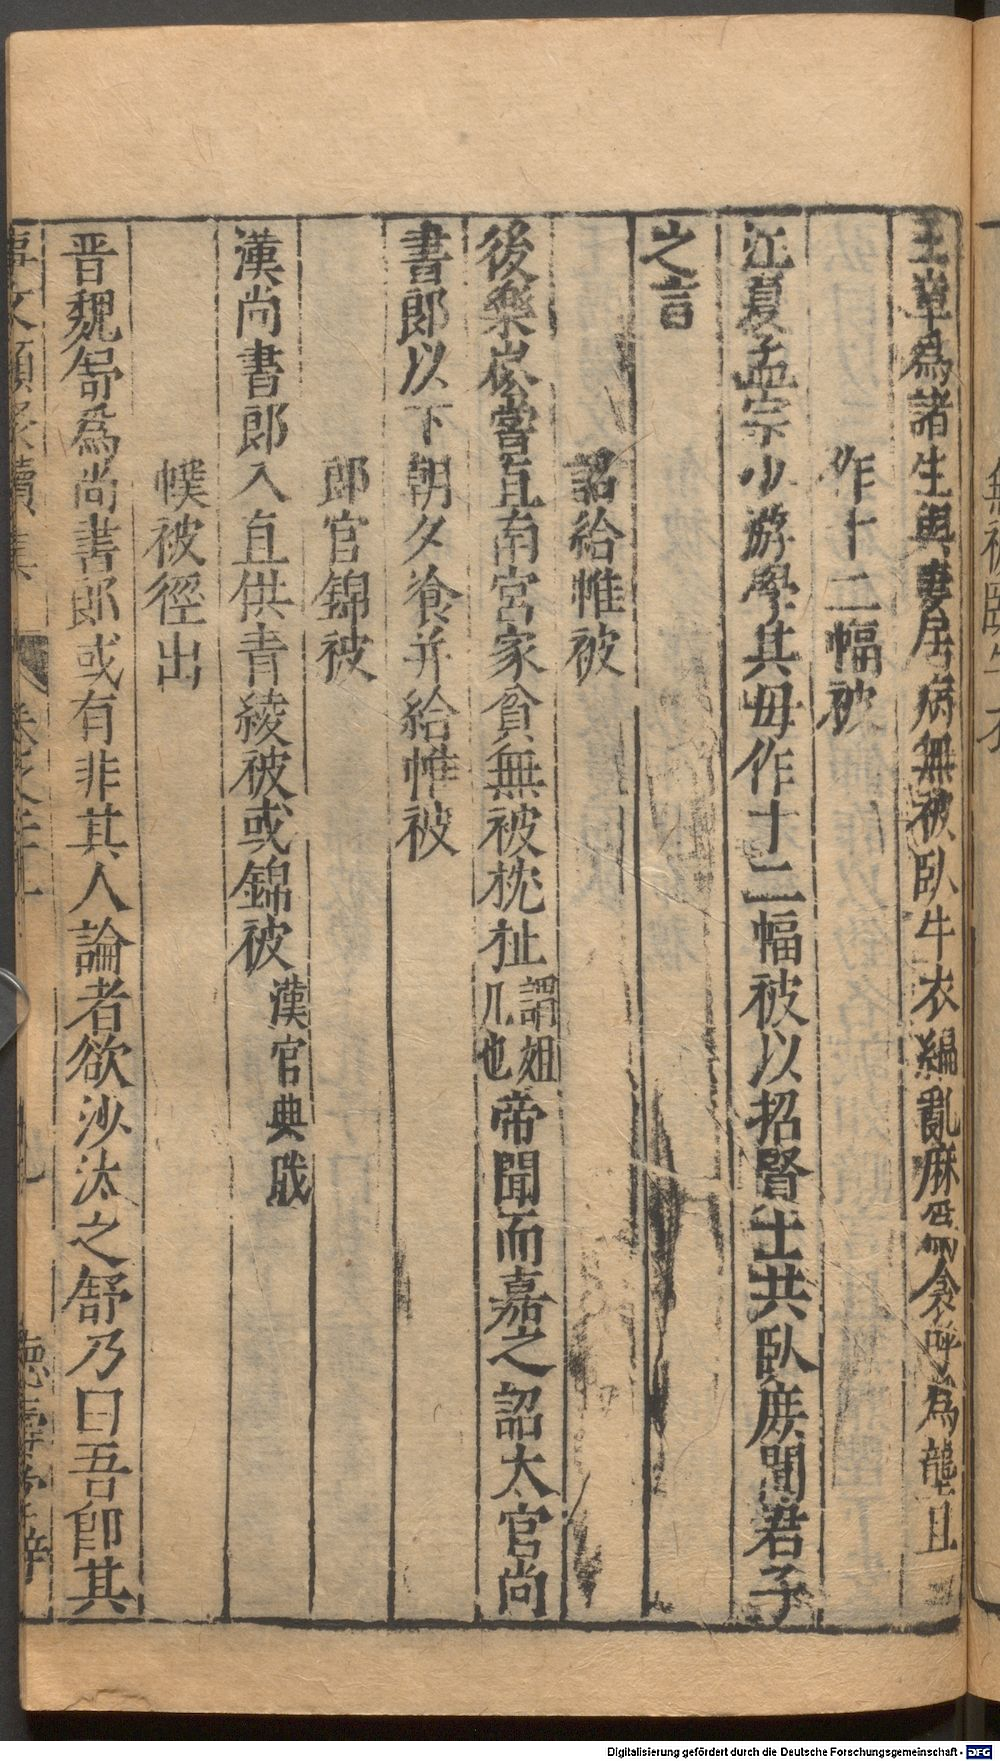 王章為諸生與妻居病無被臥牛衣編亂麻為衣呼為龍具
作十二幅被
江夏孟宗少游學其母作十二幅被以招賢士共臥庶聞君子
之言
詔給帷被
後樂崧嘗直南宮家貧無被枕杫謂俎几也帝聞而嘉之詔太官尚
書郎以下朝夕飱并給帷被
郎官錦被
漢尚書郎入直供青綾被或錦被漢官典戢
幞被徑出
晋魏舒為尚書郎或有非其人論者欲沙汰之舒乃曰吾即其
Digitalisierung gefördert durch die Deutsche Forschungsgemeinschaft - DFG